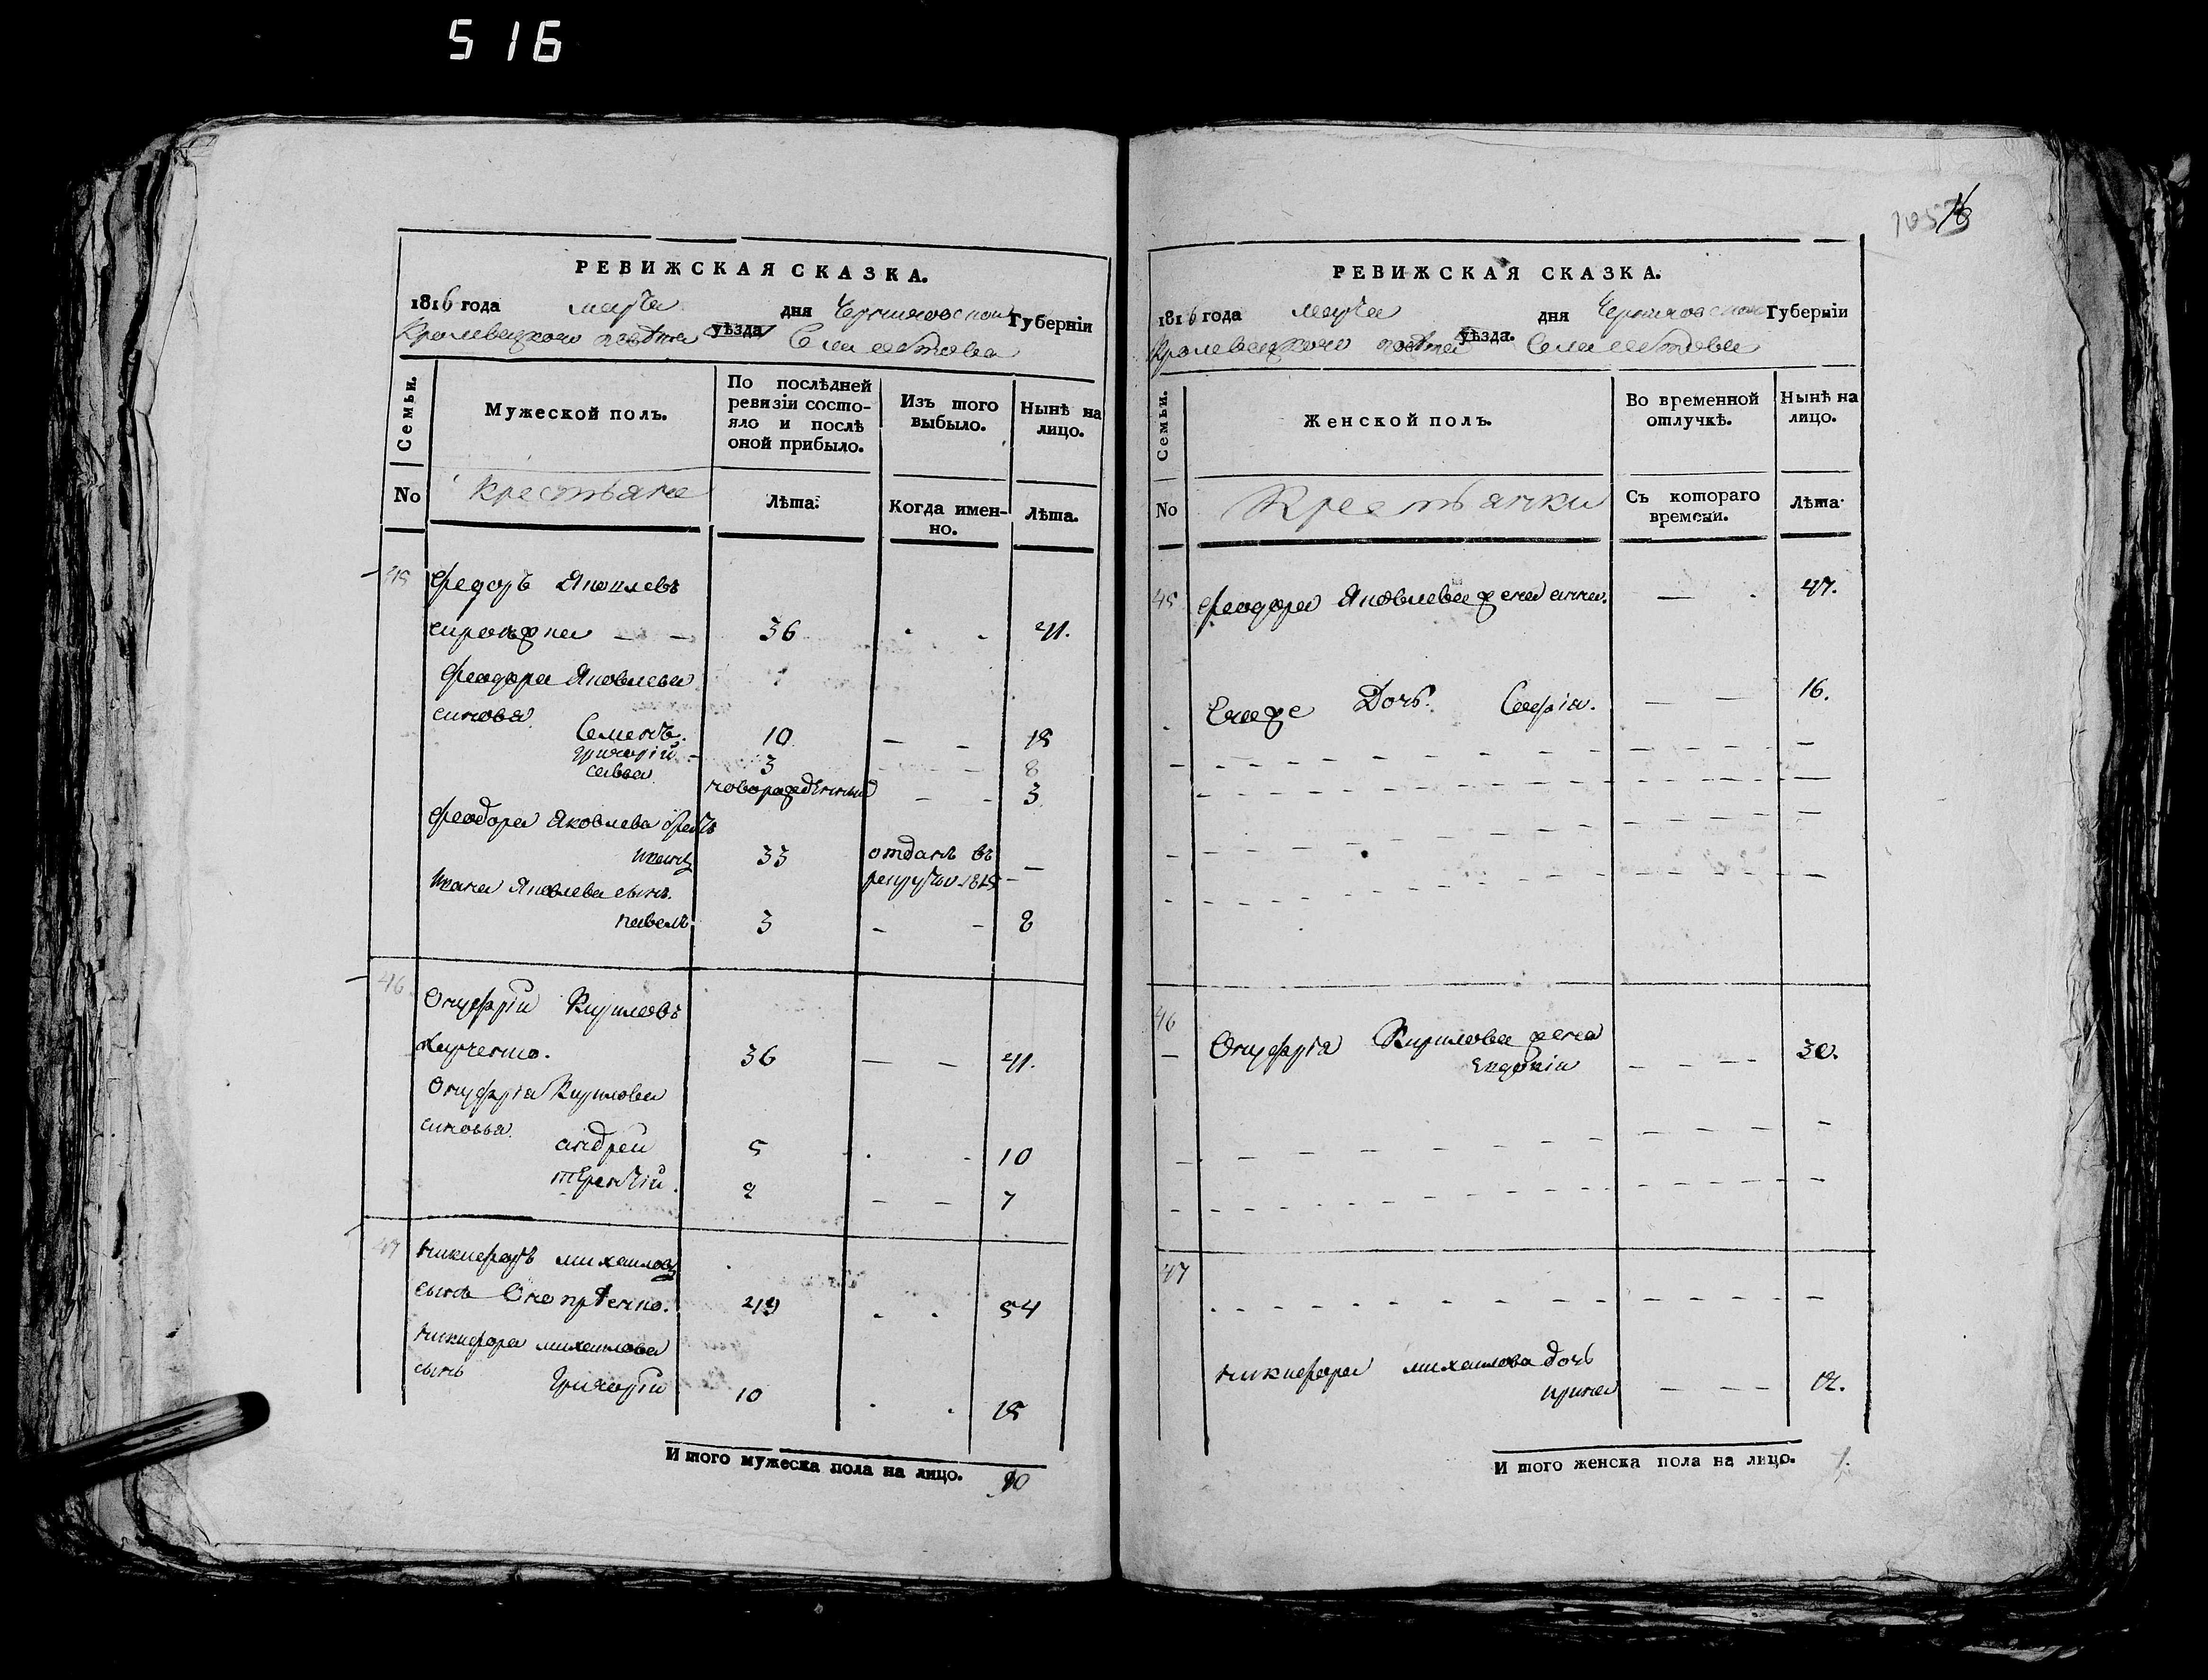 516
РЕВИЖСКАЯ СКАЗКА.
1816 года марта дня Черниговской Губерніи
Кролевецкого повѣта уѣзда Села
Семьи.
Мужеской полъ.
По послѣдней ревизіи состо-
яло и послѣ оной прибыло.
Изъ того выбыло.
Нынѣ на лицо.
No
крестьяне
Лѣта.
Когда имен-
но.
Лѣта.
45 Федоръ Яковлевъ
36 41.
Феодора Яковлева
синовя
Семенъ. 10 — - 15
Григорій 3 - - 8
савва. новорожденный - - 3
Феодора Яковлева братъ
иванъ 33 отданъ въ —
рекруты 1815 —
Ивана Яковлева сынъ.
павелъ. 3 - - 8
46 Онуфрій Кириловъ
Харченко. 36 — — 41.
Онуфрія Кирилова
синовья.
андрей 5 10
терентій. 2 — — 7
47 никифоръ михаиловъ
сынъ 49 54
никифора михаилова
сынъ Григорій 10 15
Итого мужеска пола на лицо. 10
105
РЕВИЖСКАЯ СКАЗКА.
1816 года марта дня Черниговской Губерніи
Кролевецкого повѣта уѣзда. Села
Семьи.
Женской полъ.
Во временной отлучкѣ.
Нынѣ на лицо.
No
Крестьянки
Съ котораго времени.
Лѣта
45 Феодора Яковлева жена анна. — 47.
Егоже Дочь. Софія. — 16.
46
Онуфрія Кирилова жена
Евдокія - - - - 30.
47
никифора михаилова дочь
ирина — - - 12.
Итого женска пола на лицо.